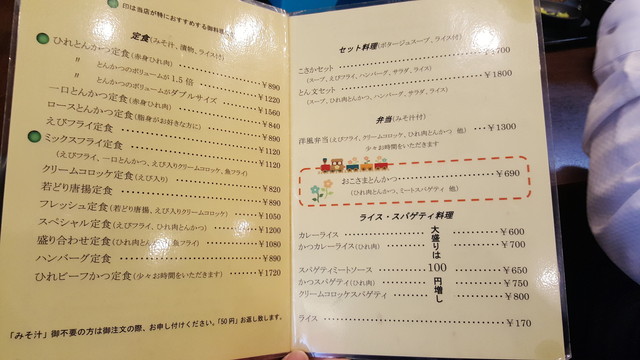 印は当店が特におすすめする御料理
定食(みそ汁、漬物、ライス付)
ひれとんかつ定食(赤身ひれ肉) ¥890
〃 とんかつのボリュームが1.5倍 ¥1220
〃 とんかつのボリュームがダブルサイズ ¥1560
一口とんかつ定食(赤身ひれ肉) ¥840
ロースとんかつ定食(脂身がお好きな方に) ¥890
えびフライ定食 ¥1120
ミックスフライ定食 ¥1120
(えびフライ、一口とんかつ、えび入りクリームコロッケ、魚フライ)
クリームコロッケ定食(えび入り) ¥820
若どり唐揚定食 ¥890
フレッシュ定食(若どり唐揚、えび入りクリームコロッケ) ¥1050
スペシャル定食(えびフライ、ひれ肉とんかつ) ¥1200
盛り合わせ定食(ひれ肉とんかつ、魚フライ) ¥1080
ハンバーグ定食 ¥890
ひれビーフかつ定食(少々お時間をいただきます) ¥1720
「みそ汁」御不要の方は御注文の際、お申し付けください。「50円」お返し致します。
セット料理(ポタージュスープ、ライス付)
こさかセット 700
(スープ、えびフライ、ハンバーグ、サラダ、ライス)
とん文セット ¥1800
(スープ、ひれ肉とんかつ、ハンバーグ、サラダ、ライス)
弁当(みそ汁付)
洋風弁当(えびフライ、クリームコロッケ、ひれ肉とんかつ 他) ¥1300
少々お時間をいただきます
おこさまとんかつ ¥690
(ひれ肉とんかつ、ミートスパゲティ 他)
ライス・スパゲティ料理
カレーライス ¥600
かつカレーライス(ひれ肉) ¥700
スパゲティミートソース ¥650
かつスパゲティ(ひれ肉) ¥750
クリームコロッケスパゲティ ¥800
大盛りは100円増し
ライス ¥170